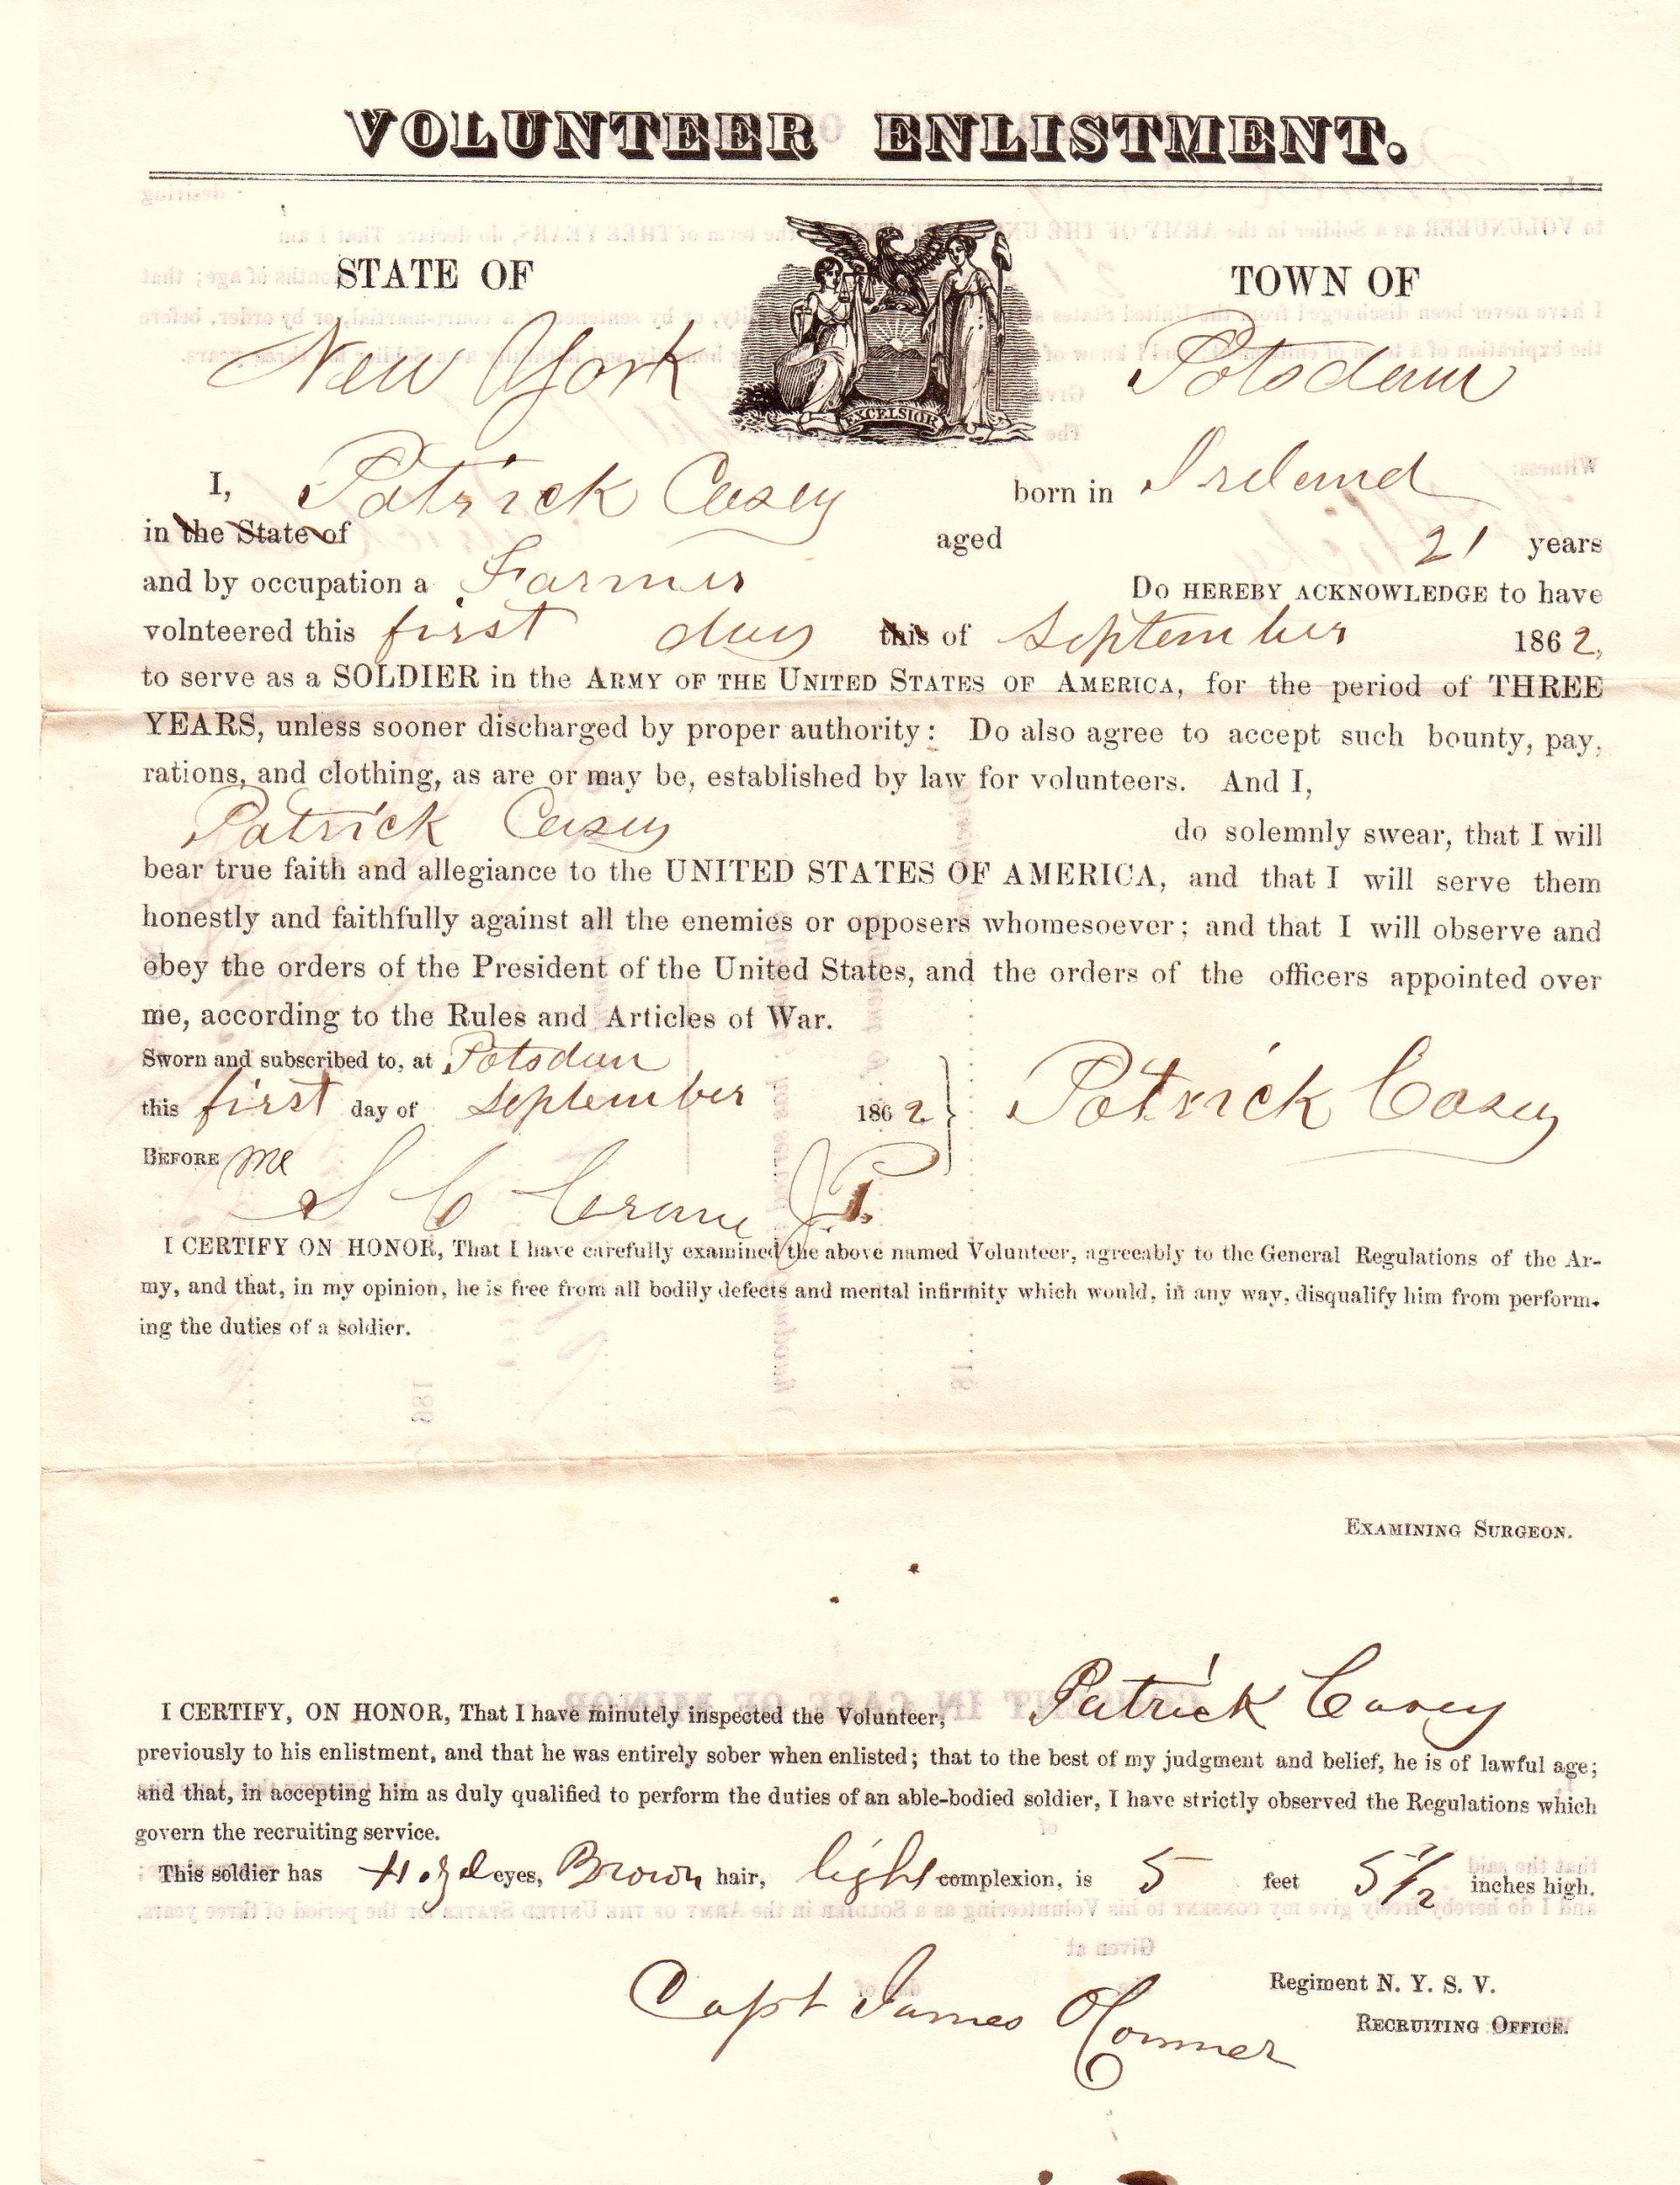 VOLUNTEER ENLISTMENT.
STATE OF TOWN OF
New York Potsdam
EXCELSIOR
I, Patrick Casey born in Ireland
in the State of aged 21 years
and by occupation a Farmer Do HEREBY ACKNOWLEDGE to have
volnteered this first day this of September 1862,
to serve as a SOLDIER in the ARMY OF THE UNITED STATES OF AMERICA, for the period of THREE
YEARS, unless sooner discharged by proper authority: Do also agree to accept such bounty, pay,
rations, and clothing, as are or may be, established by law for volunteers. And I,
Patrick Casey do solemnly swear, that I will
bear true faith and allegiance to the UNITED STATES OF AMERICA, and that I will serve them
honestly and faithfully against all the enemies or opposers whomesoever; and that I will observe and
obey the orders of the President of the United States, and the orders of the officers appointed over
me, according to the Rules and Articles of War.
Sworn and subscribed to, at Potsdam
this first day of September 1862 Patrick Casey
BEFORE me
S C Crane J.P.
I CERTIFY ON HONOR, That I have carefully examined the above named Volunteer, agreeably to the General Regulations of the Ar-
my, and that, in my opinion, he is free from all bodily defects and mental infirmity which would, in any way, disqualify him from perform-
ing the duties of a soldier.
EXAMINING SURGEON.
I CERTIFY, ON HONOR, That I have minutely inspected the Volunteer, Patrick Casey
previously to his enlistment, and that he was entirely sober when enlisted; that to the best of my judgment and belief, he is of lawful age;
and that, in accepting him as duly qualified to perform the duties of an able-bodied soldier, I have strictly observed the Regulations which
govern the recruiting service.
This soldier has Hazel eyes, Brown hair, light complexion, is 5 feet 5 1/2 inches high.
Regiment N. Y. S. V.
Capt James
RECRUITING OFFICE.